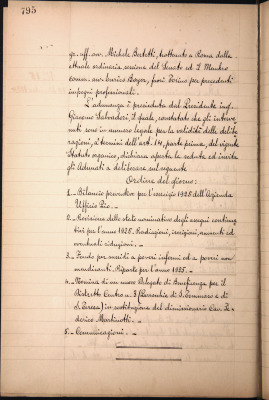 795
gr. uff. avv. Michele Bertetti, trattenuto a Roma dalla
attuale ordinaria sessione del Senato ed il Membro
comm. avv. Enrico Boyer, fuori Torino per precedenti
impegni professionali.
L'adunanza è presieduta dal Presidente ing.
Giacomo Salvadori, il quale, constatato che gli interve-
nuti sono in numero legale per la validità delle delibe-
razioni, a' termini dell'art. 14, parte prima, del vigente
Statuto organico, dichiara aperta la seduta ed invita
gli Adunati a deliberare sul seguente
Ordine del giorno:
1.- Bilancio preventivo per l'esercizio 1928 dell'Azienda
Ufficio Pio.-
2.- Revisione dello stato nominativo degli assegni continua-
tivi per l'anno 1928. Radiazioni, revisioni, aumenti ed
eventuali riduzioni.-
3.- Fondo per sussidi a poveri infermi ed a poveri non
mendicanti. Riparto per l'anno 1928.-
4.- Nomina di un nuovo Delegato di Beneficenza per il
Distretto Centro n. 3 (Parrocchie di S. Tommaso e di
S. Teresa) in sostituzione del dimissionario Cav. Fe-
derico Martinotti.-
5.- Comunicazioni.-